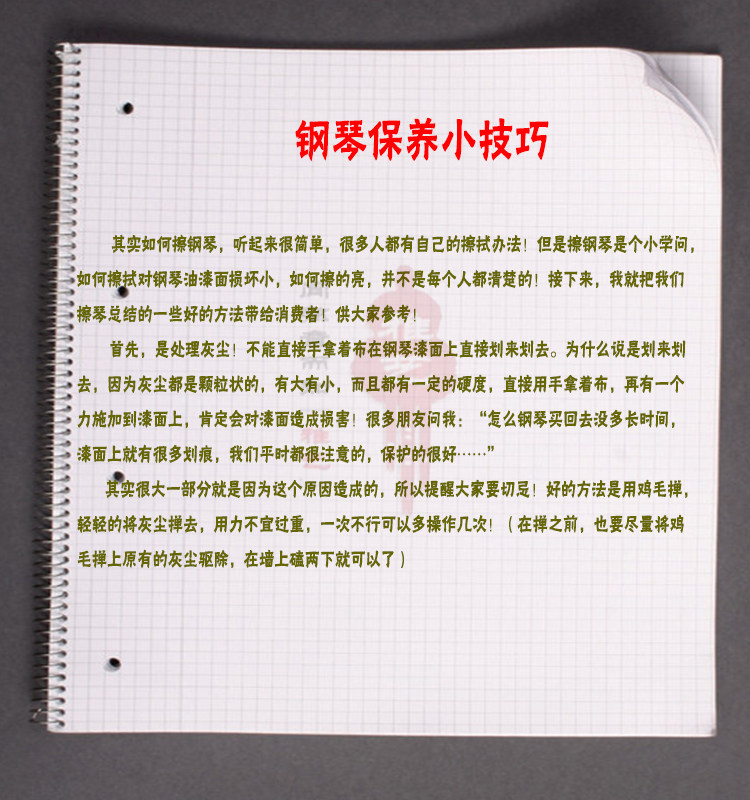 钢琴保养小技巧
其实如何擦钢琴，听起来很简单，很多人都有自己的擦拭办法！但是擦钢琴是个小学问，
如何擦拭对钢琴油漆面损坏小，如何擦的亮，并不是每个人都清楚的！接下来，我就把我们
擦琴总结的一些好的方法带给消费者！供大家参考！
首先，是处理灰尘！不能直接手拿着布在钢琴漆面上直接划来划去。为什么说是划来划
去，因为灰尘都是颗粒状的，有大有小，而且都有一定的硬度，直接用手拿着布，再有一个
力施加到漆面上，肯定会对漆面造成损害！很多朋友问我：“怎么钢琴买回去没多长时间，
漆面上就有很多划痕，我们平时都很注意的，保护的很好……”
其实很大一部分就是因为这个原因造成的，所以提醒大家要切忌！好的方法是用鸡毛掸，
轻轻的将灰尘掸去，用力不宜过重，一次不行可以多操作几次！（在掸之前，也要尽量将鸡
毛掸上原有的灰尘驱除，在墙上磕两下就可以了）